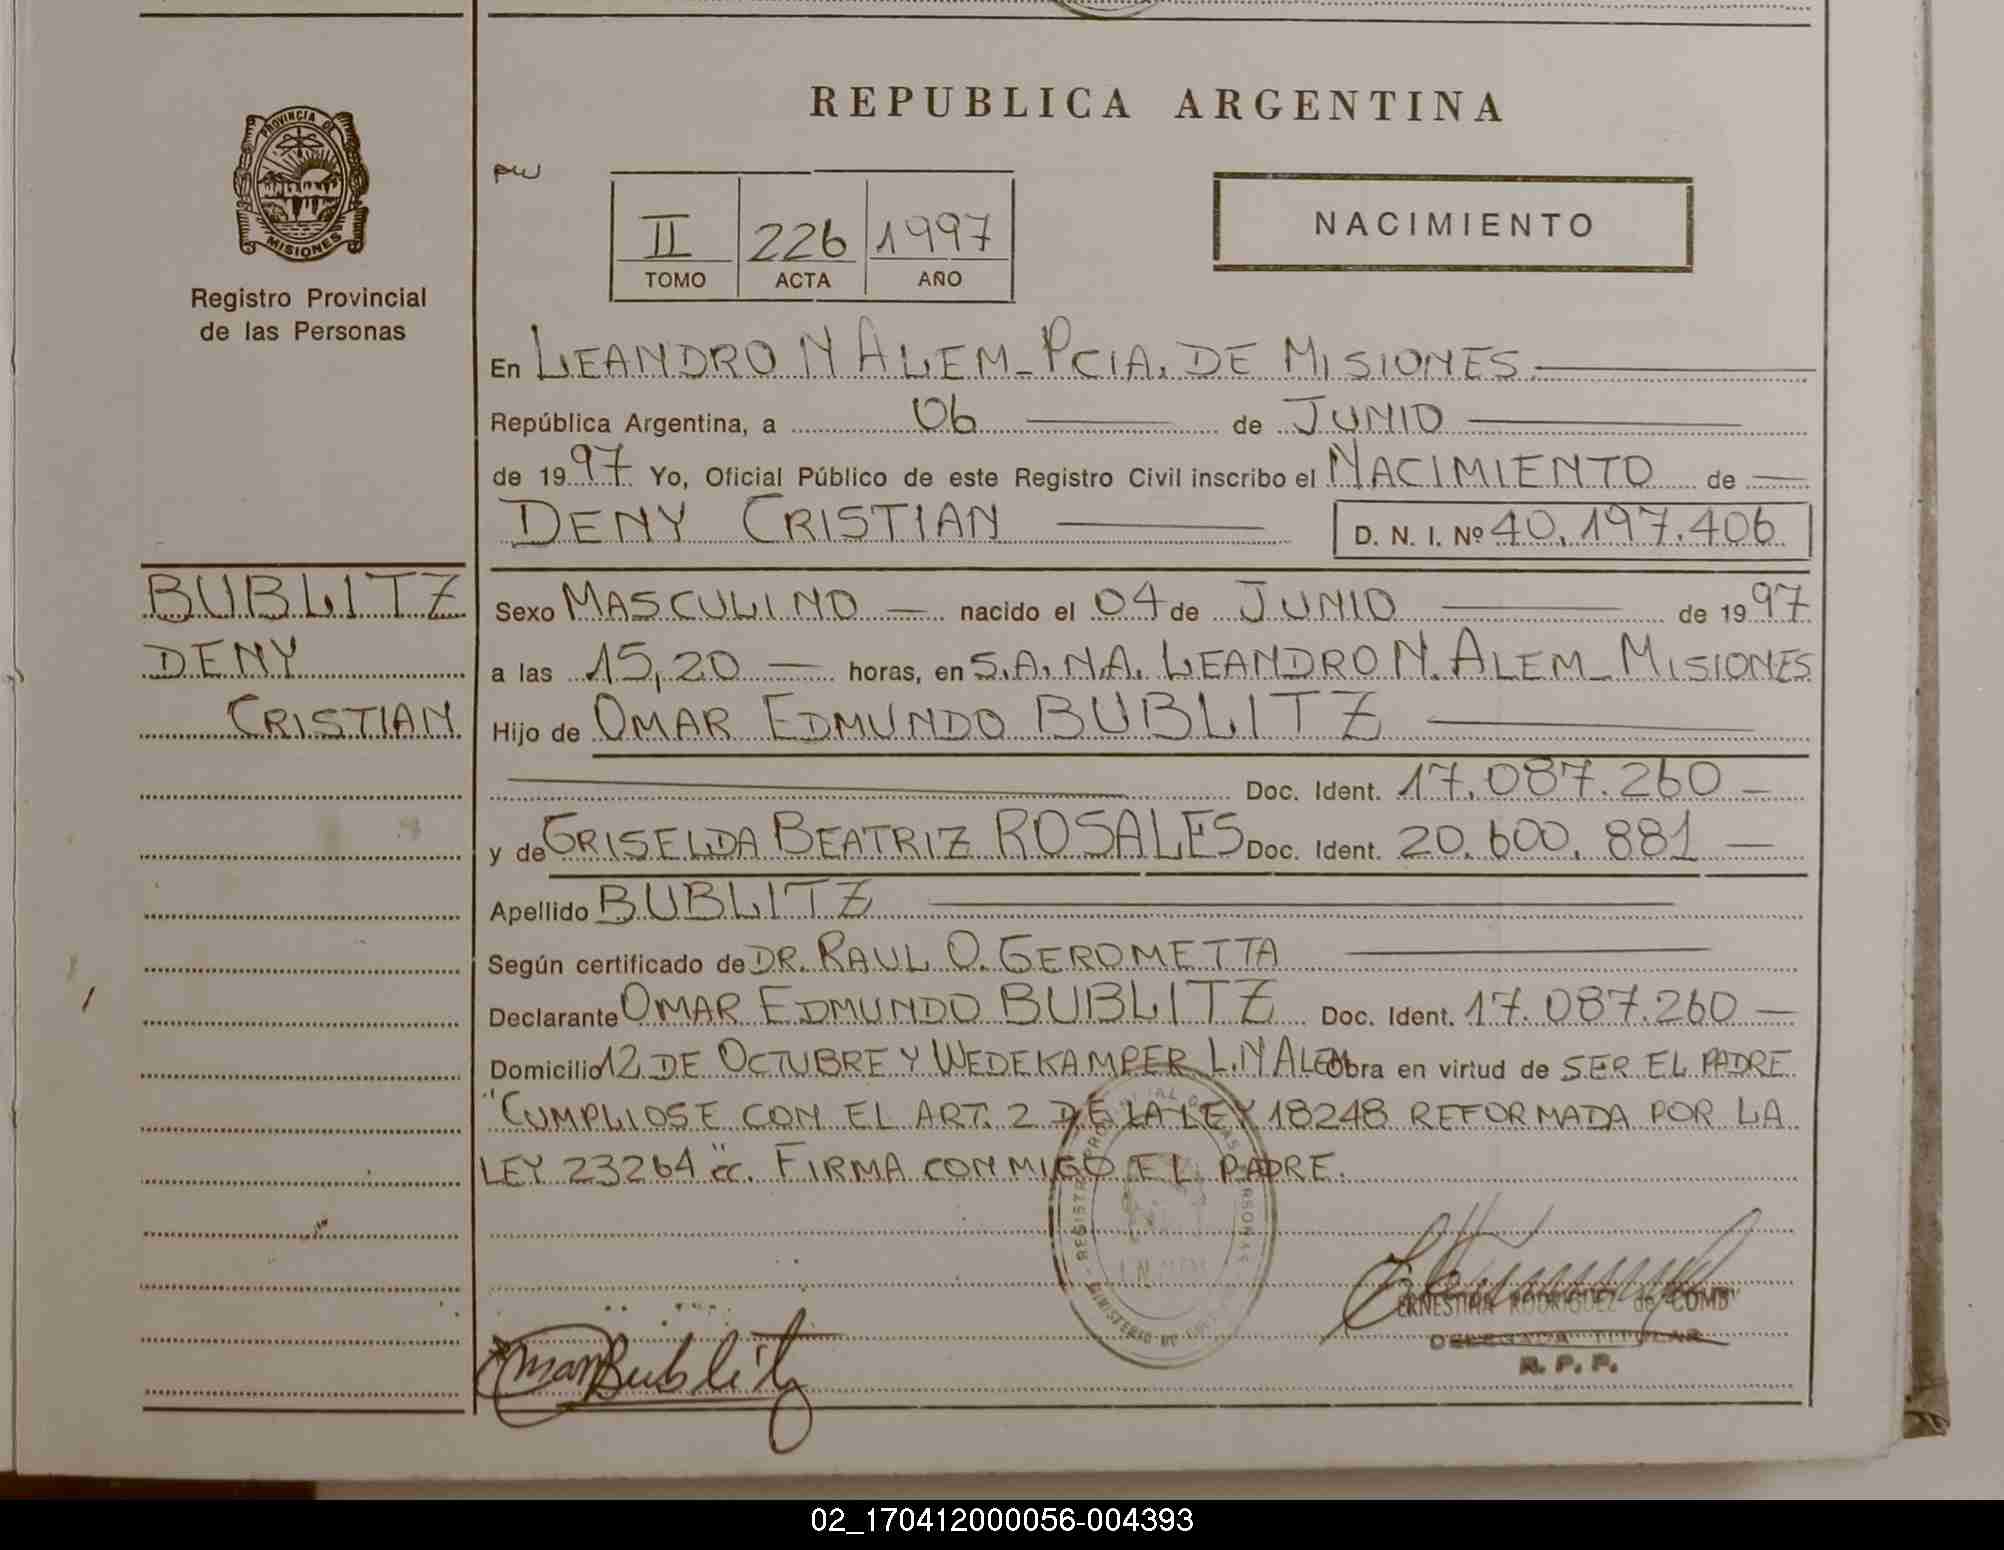 REPUBLICA ARGENTINA
PROVINCIA DE MISIONES
Registro Provincial
de las Personas
II 226 1997
TOMO ACTA AÑO
NACIMIENTO
En LEANDRO N ALEM_PCIA. DE MISIONES.
República Argentina, a 06 de JUNIO
de 1997 Yo, Oficial Público de este Registro Civil inscribo el NACIMIENTO de
DENY CRISTIAN D. N. I. Nº 40.197.406
BUBLITZ
DENY
CRISTIAN
Sexo MASCULINO nacido el 04 de JUNIO de 1997
a las 15,20 horas, en S.A.N.A. LEANDRO N. ALEM_MISIONES
Hijo de OMAR EDMUNDO BUBLITZ
Doc. Ident. 17.087.260
y de GRISELDA BEATRIZ ROSALES Doc. Ident. 20.600.881
Apellido BUBLITZ
Según certificado de DR. RAUL O. GEROMETTA
Declarante OMAR EDMUNDO BUBLITZ Doc. Ident. 17.087.260
Domicilio 12 DE OCTUBRE Y WEDEKAMPER L.N ALEM Obra en virtud de SER EL PADRE
"CUMPLIOSE CON EL ART. 2 DE LA LEY 18248 REFORMADA POR LA
LEY 23264 cc. FIRMA CONMIGO EL PADRE.
ERNESTINA RODRIGUEZ de COMBY
DELEGADA TITULAR
R. P. P.
Omar Bublitz
02_170412000056-004393